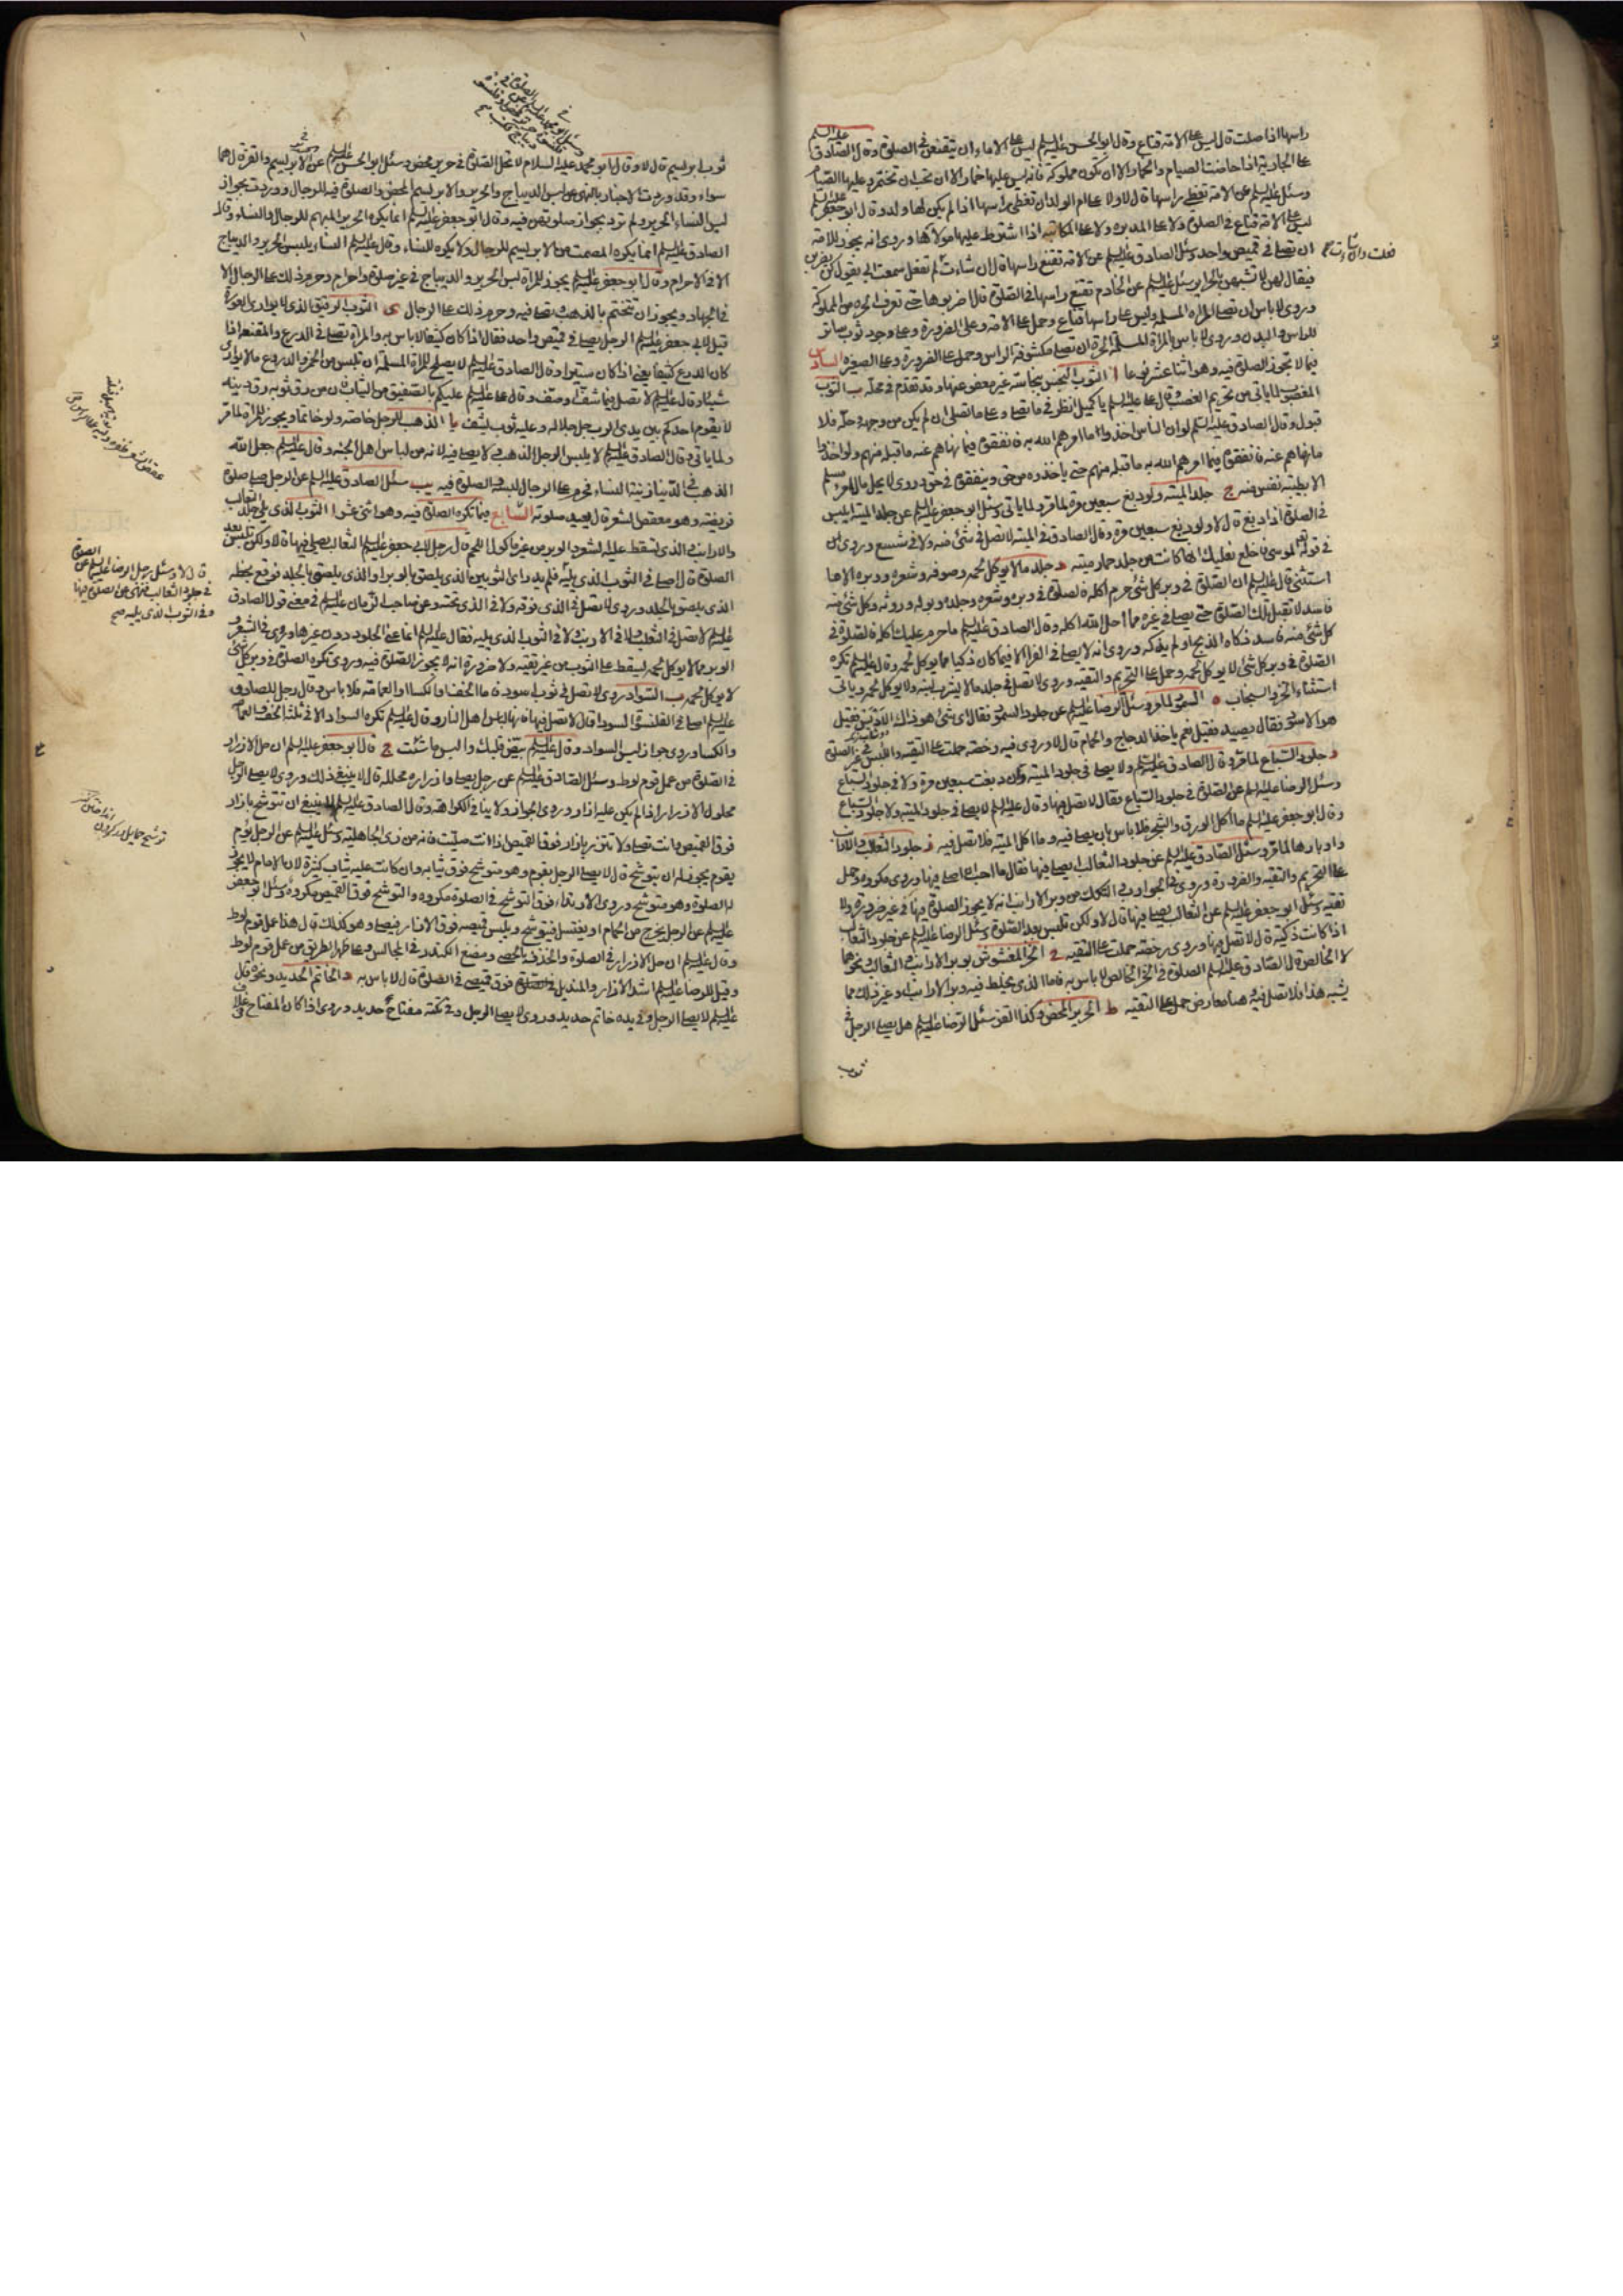 راسها اذا صلت قال ليس على الامة قناع وقال ابو الحسن عليه السلم ليس على الاماء ان يتقنعن في الصلوة وقال الصادق عليه السلم
على الجارية اذا حاضت الصيام والخمار الا ان تكون مملوكة فانه ليس عليها خمار الا ان تحب ان تختمر وعليها الصيام
وسئل عليه السلم عن الامة تغطي راسها قال لا ولا على ام الولد ان تغطي راسها اذا لم يكن لها ولد وقال ابو جعفر عليه السلم
ليس على الامة قناع في الصلوة ولا على المدبرة ولا على المكاتبة اذا اشترط عليها مولاها وروي انه يجوز للامة
ان تصلي في قميص واحد وسئل الصادق عليه السلم عن الامة تقنع راسها قال ان شاءت فعلت وان شاءت لم تفعل سمعت ابي يقول كن يضربن
فيقال لهن لا تشبهن بالحراير وسئل عليه السلم عن الخادم تقنع راسها في الصلوة قال اضربوها حتى تعرف الحرة من المملوكة
وروي لا باس ان تصلي المراة المسلمة وليس على راسها قناع وحمل على الامة وعلى الضرورة وعلى وجود ثوب ساتر
للراس والبدن وروي لا باس بالمراة المسلمة الحرة ان تصلي مكشوفة الراس وحمل على الضرورة وعلى الصغيرة السادس
فيما لا تجوز الصلوة فيه وهو اثنا عشر نوعا ا الثوب النجس بنجاسة غير معفو عنها وقد تقدم في محله ب الثوب
المغصوب لما ياتي من تحريم الغصب وقال علي عليه السلم يا كميل انظر في ما تصلي وعلى ما تصلي ان لم يكن من وجهه وحله فلا
قبول وقال الصادق عليه السلم لو ان الناس اخذوا ما امرهم الله به فانفقوه فيما نهاهم عنه ما قبله منهم ولو اخذوا
ما نهاهم عنه فانفقوه فيما امرهم الله به ما قبله منهم حتى ياخذوه من حق وينفقوه في حق وروي لا يحل مال امرء مسلم
الا بطيبة نفس منه ج جلد الميتة ولو دبغ سبعين مرة لما مر ولما ياتي وسئل ابو جعفر عليه السلم عن جلد الميتة ايلبس
في الصلوة اذا دبغ قال لا ولو دبغ سبعين مرة وقال الصادق في الميتة لا تصل في شئ منه ولا في شسع وروي
في قوله لموسى فاخلع نعليك انها كانت من جلد حمار ميتة د جلد ما لا يوكل لحمه وصوفه وشعره ووبره الا ما
استثني قال عليه السلم ان الصلوة في وبر كل شئ حرم اكله فالصلوة في وبره وشعره وجلده وبوله وروثه وكل شئ منه
فاسد لا تقبل تلك الصلوة حتى يصلي في غيره مما احل الله اكله وقال الصادق عليه السلم ما حرم عليك اكله فالصلوة في
كل شئ منه فاسد ذكاه الذبح او لم يذكه وروي انه لا يصلي في الفراء الا فيما كان ذكيا مما يوكل لحمه وقال عليه السلم تكره
الصلوة في وبر كل شئ لا يوكل لحمه وحمل على التحريم والتقية وروي لا تصل في جلد ما لا يشرب لبنه ولا يوكل لحمه وياتي
استثناء الخز والسنجاب ه السمور لما مر وسئل الرضا عليه السلم عن جلود السمور فقال اي شئ هو ذاك الادبس فقيل
هو الاسود فقال يصيد فقيل نعم ياخذ الدجاج والحمام قال لا وروي فيه رخصة حملت على التقية واللبس في غير الصلوة
و جلود السباع لما مر وقال الصادق عليه السلم ولا يصلي في جلود الميتة وان دبغت سبعين مرة ولا في جلود السباع
وسئل الرضا عليه السلم عن الصلوة في جلود السباع فقال لا تصل فيها وقال عليه السلم لا يصلي في جلود الميتة ولا جلود السباع
وقال ابو جعفر عليه السلم ما اكل الورق والشجر فلا باس بان يصلي فيه وما اكل الميتة فلا تصل فيه ز جلود الثعالب والارانب
واوبارها لما مر وسئل الصادق عليه السلم عن جلود الثعالب ايصلي فيها فقال ما احب ان اصلي فيها وروي مكروه وحمل
على التحريم والتقية والضرورة وروي في الجوارب والتكك من وبر الارانب انه لا يجوز الصلوة فيها في غير ضرورة ولا
تقية وسئل ابو جعفر عليه السلم عن الثعالب يصلي فيها قال لا ولكن تلبس بعد الصلوة وسئل الرضا عليه السلم عن جلود الثعالب
اذا كانت ذكية قال لا تصل فيها وروي رخصة حملت على التقية ح الخز المغشوش بوبر الارانب والثعالب ونحوهما
لا الخالص قال الصادق عليه السلم الصلوة في الخز الخالص لا باس به فاما الذي يخلط فيه وبر الارانب او غير ذلك مما
يشبه هذا فلا تصل فيه معارض حمل على التقية ط الحرير المحض وكذا القز سئل الرضا عليه السلم هل يصلي الرجل في
ثوب
فعلت وان شاءت صح
ثوب ابريسم قال لا وقال ابو محمد عليه السلام لا تحل الصلوة في حرير محض وسئل ابو الحسن عليه السلم عن الابريسم والقز قال هما
سواء وقد وردت الاخبار بالنهي عن لبس الديباج والحرير والابريسم المحض والصلوة فيه للرجال ووردت بجواز
لبس النساء الحرير ولم ترد بجواز صلوتهن فيه وقال ابو جعفر عليه السلم انما يكره الحرير المبهم للرجال والنساء وقال
الصادق عليه السلم انما يكره المصمت من الابريسم للرجال ولا يكره للنساء وقال عليه السلم النساء يلبس الحرير والديباج
الا في الاحرام وقال ابو جعفر عليه السلم يجوز للمراة لبس الحرير والديباج في غير صلوة واحرام وحرم ذلك على الرجال الا
في الجهاد ويجوز ان تتختم بالذهب وتصلي فيه وحرم ذلك على الرجال ى الثوب الرقيق الذي لا يواري العورة
قيل لابي جعفر عليه السلم الرجل يصلي في قميص واحد فقال اذا كان كثيفا لا باس به والمراة تصلي في الدرع والمقنعة اذا
كان الدرع كثيفا يعني اذا كان ستيرا وقال الصادق عليه السلم لا يصلح للمراة المسلمة ان تلبس من الخمر والدروع ما لا يواري
شيئا وقال عليه السلم لا تصل فيما شف او صف وقال علي عليه السلم عليكم بالصفيق من الثياب فان من رق ثوبه رق دينه
لا يقوم احدكم بين يدي الرب جل جلاله وعليه ثوب يشف يا الذهب للرجل خاصة ولو خاتما ويجوز للمراة لما مر
ولما ياتي وقال الصادق عليه السلم لا يلبس الرجل الذهب ولا يصلي فيه لانه من لباس اهل الجنة وقال عليه السلم جعل الله
الذهب في الدنيا زينة النساء فحرم على الرجال لبسه والصلوة فيه يب سئل الصادق عليه السلم عن الرجل صلى صلوة
فريضة وهو معقص الشعر قال يعيد صلوته السابع فيما تكره الصلوة فيه وهو اثنى عشر ا الثوب الذي يلي جلد الثعالب
والارانب والذي تسقط عليه الشعور والوبر من غير ماكول اللحم قال رجل لابي جعفر عليه السلم الثعالب يصلى فيها قال لا ولكن تلبس بعد
الصلوة قال اصلي في الثوب الذي يليه فلم يدر اي الثوبين الذي يلصق بالوبر او الذي يلصق بالجلد فوقع بخطه
الذي يلصق بالجلد وروي لا تصل في الذي فوقه ولا في الذي تحته وعن صاحب الزمان عليه السلم في معنى قول الصادق
عليه السلم لا تصل في الثعلب ولا في الارنب ولا في الثوب الذي يليه فقال عليه السلم انما عنى الجلود دون غيرها وروي في الشعر و
الوبر مما لا يوكل لحمه يسقط على الثوب من غير تقية ولا ضرورة انه لا يجوز الصلوة فيه وروي تكره الصلوة في وبر كل شئ
لا يوكل لحمه ب السواد روي لا تصل في ثوب اسود فاما الخف والكساء والعمامة فلا باس وقال رجل للصادق
عليه السلم اصلي في القلنسوة السوداء قال لا تصل فيها فانها لباس اهل النار وقال عليه السلم تكره السواد الا في ثلثة الخف والعمامة
والكساء وروي جواز لبس السواد وقال عليه السلم بيض قلبك والبس ما شئت ج قال ابو جعفر عليه السلم ان حل الازرار
في الصلوة من عمل قوم لوط وسئل الصادق عليه السلم عن رجل يصلي وازراره محللة قال لا ينبغي ذلك وروي لا يصلي الرجل
محلول الازرار اذا لم يكن عليه ازار وروي الجواز ولا ينافي الكراهة وقال الصادق عليه السلم لا ينبغي ان تتوشح بازار
فوق القميص وانت تصلي ولا تتزر بازار فوق القميص اذا انت صليت فانه من زي الجاهلية وسئل عليه السلم عن الرجل يؤم
بقوم يجوز له ان يتوشح قال لا يصلي الرجل بقوم وهو متوشح فوق ثيابه وان كانت عليه ثياب كثيرة لان الامام لا يجوز
له الصلوة وهو متوشح وروي الارتداء فوق التوشح في الصلوة مكروه والتوشح فوق القميص مكروه وسئل ابو جعفر
عليه السلم عن الرجل يخرج من الحمام او يغتسل فيتوشح ويلبس قميصه فوق الازار فيصلي وهو كذلك قال هذا عمل قوم لوط
وقال عليه السلم ان حل الازرار في الصلوة والخذف بالحصى ومضغ الكندر في المجالس وعلى ظهر الطريق من عمل قوم لوط
وقيل للرضا عليه السلم اشد الازار والمنديل فوق قميصي في الصلوة قال لا باس به د الخاتم الحديد ونحوه قال
عليه السلم لا يصلي الرجل وفي يده خاتم حديد وروي لا يصلي الرجل وفي تكته مفتاح حديد وروي اذا كان المفتاح في غلاف
قال لا وسئل رجل الرضا عليه السلم عن الصلوة
في جلود الثعالب فنهى عن الصلوة فيها
وفي الثوب الذي يليه صح